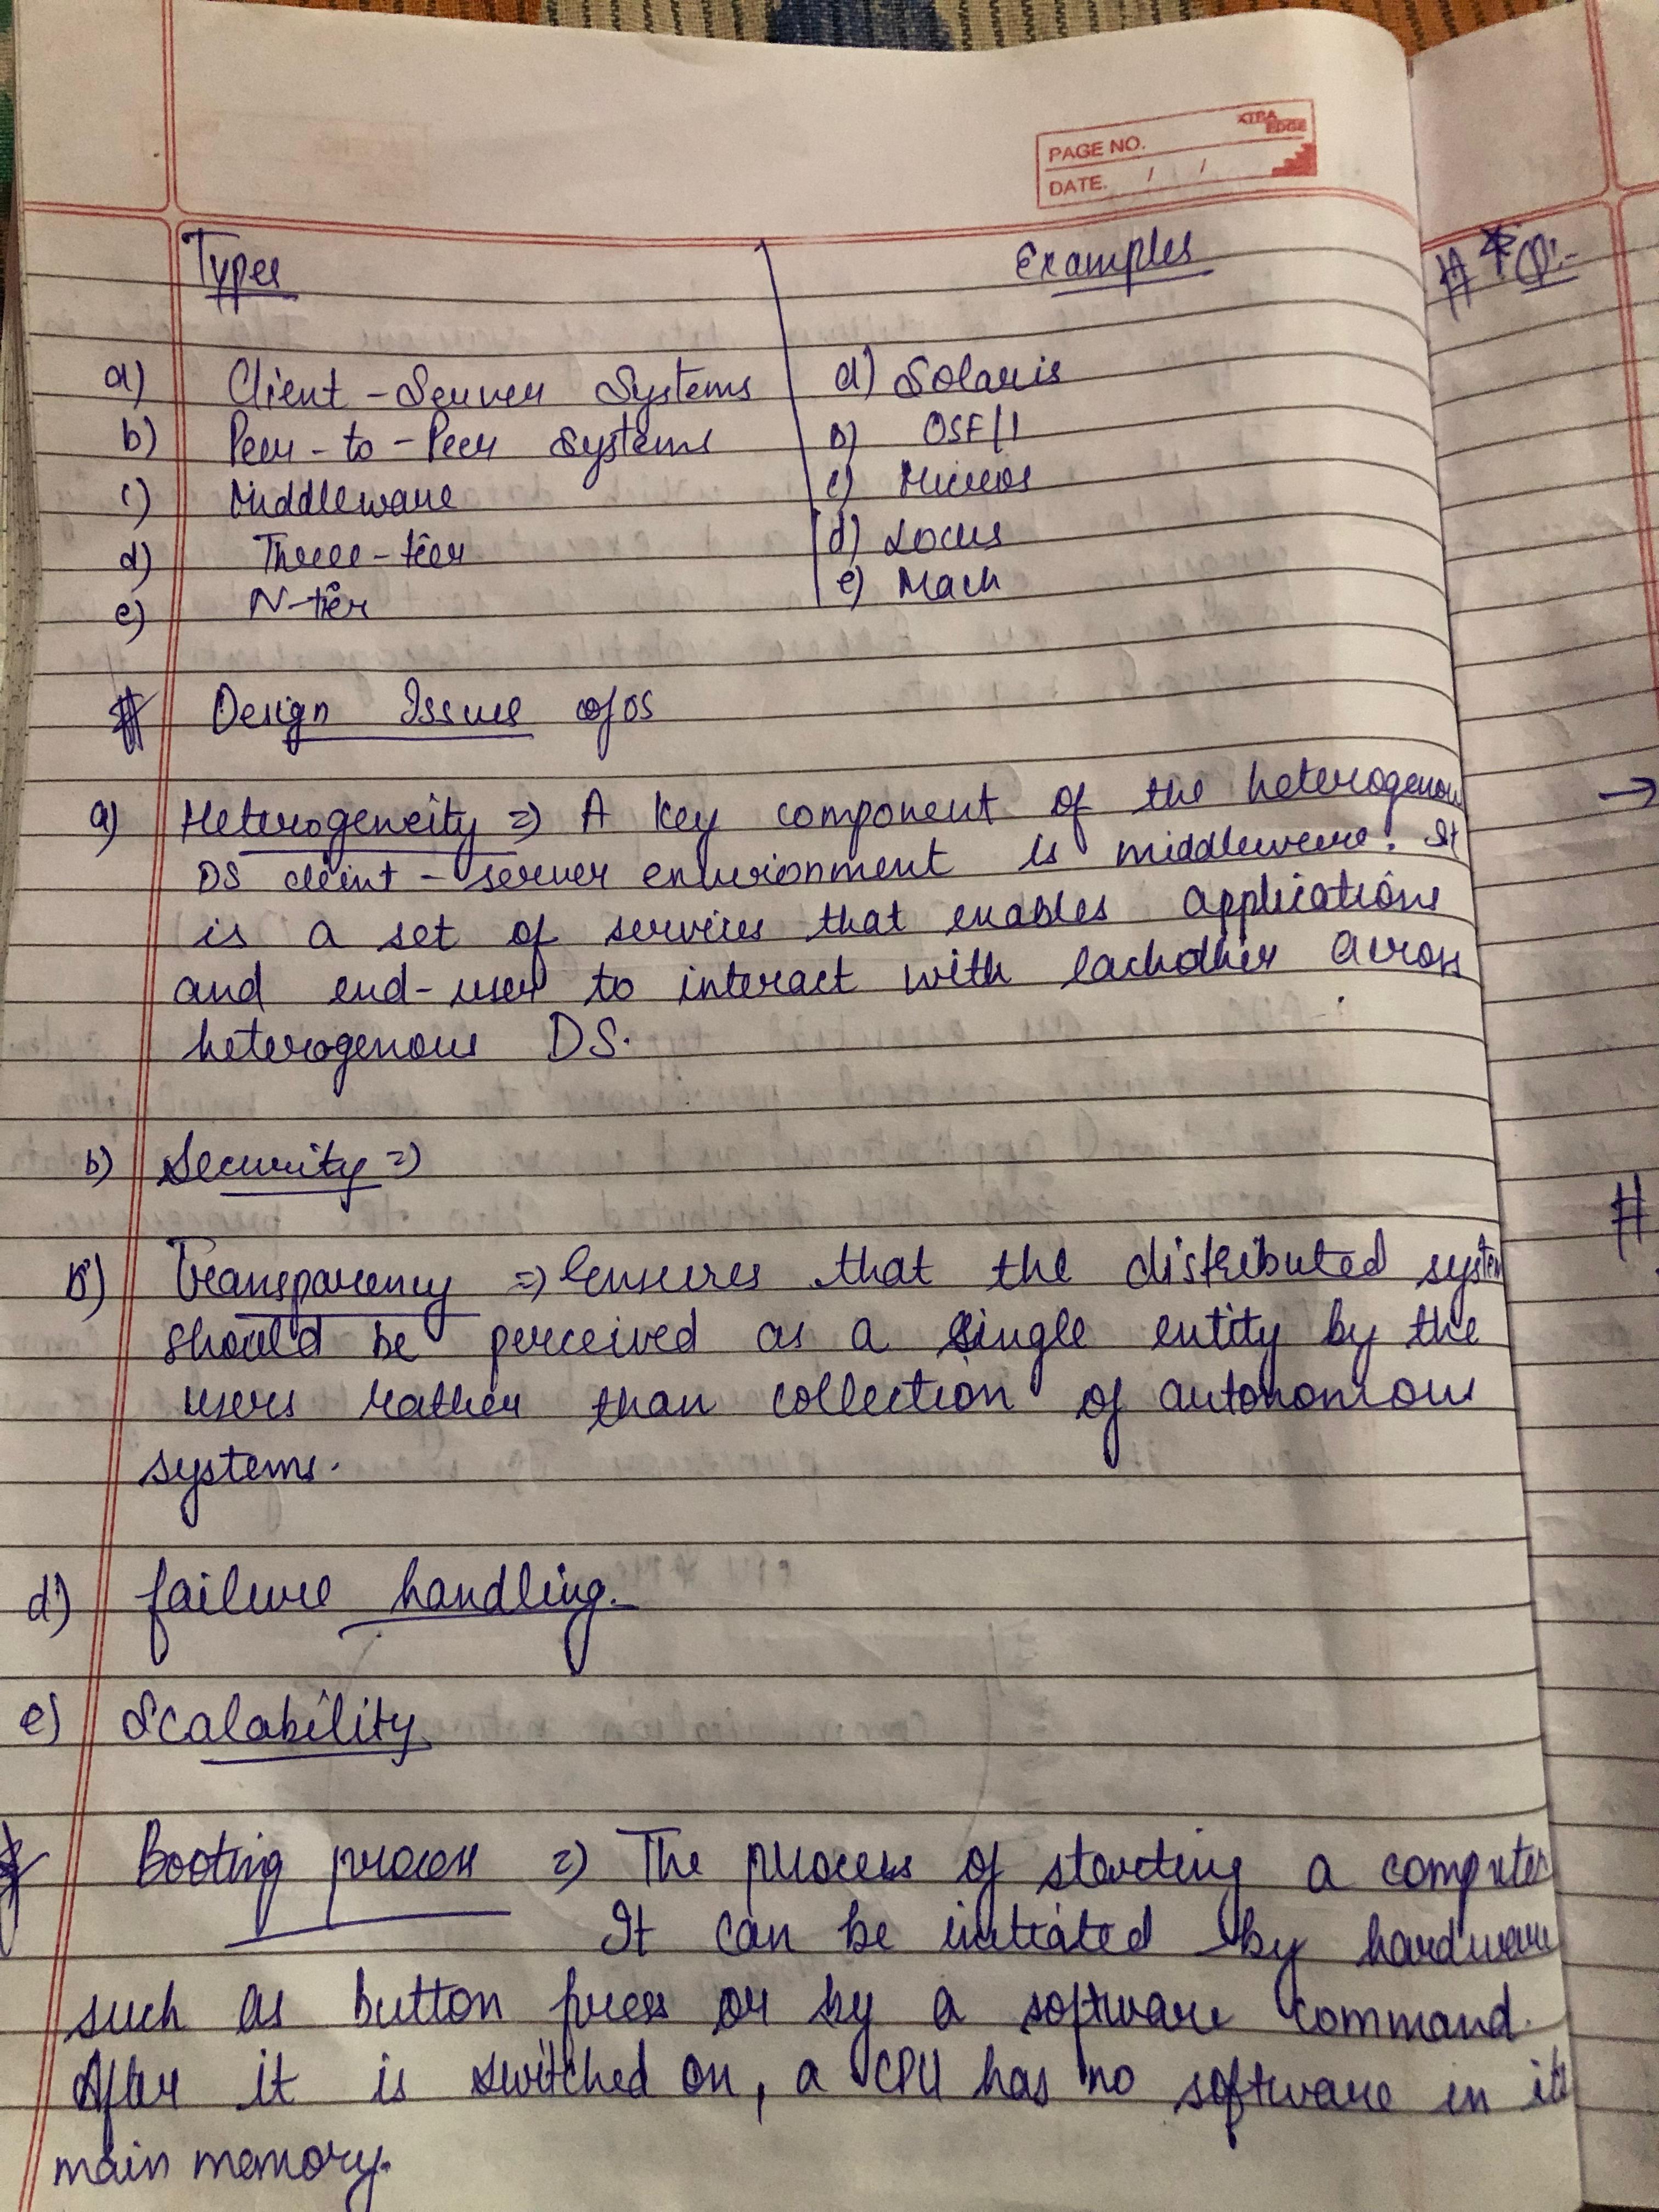 XTRA EDGE
PAGE NO.
DATE. / /
Types Examples
a) Client-Server Systems a) Solaris
b) Peer-to-Peer Systems b) OSF/1
c) Middleware c) Micros
d) Three-tier d) Locus
e) N-tier e) Mach
# Design Issues of DS
a) Heterogeneity => A key component of the heterogenous
DS client-server environment is middleware. It
is a set of services that enables applications
and end-user to interact with eachother across
heterogenous DS.
b) Security =>
Transparency => Censures that the distributed system
should be perceived as a single entity by the
users rather than collection of autonomous
systems.
d) failure handling.
e) Scalability
Booting process => The process of starting a computer
It can be initiated by hardware
such as button press or by a software command.
After it is switched on, a CPU has no software in its
main memory.
# * Q:-
→
#